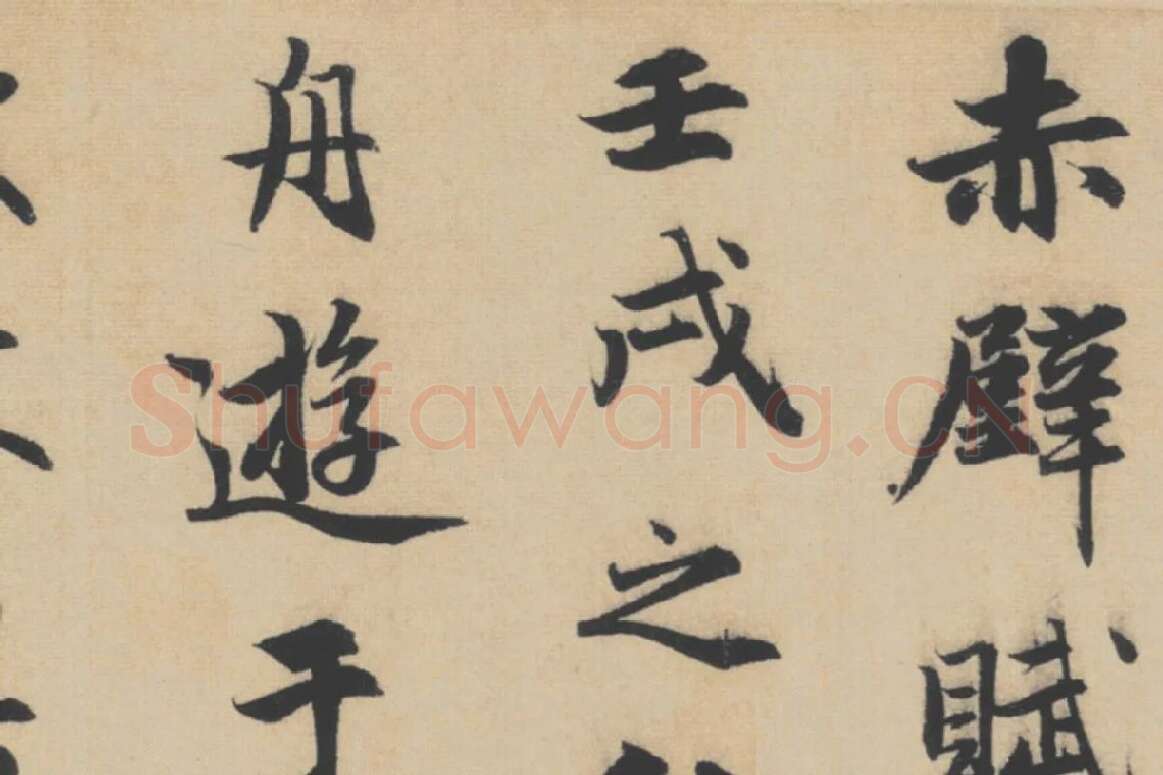 赤壁賦
壬戌之
舟遊于
Shufawang.CN